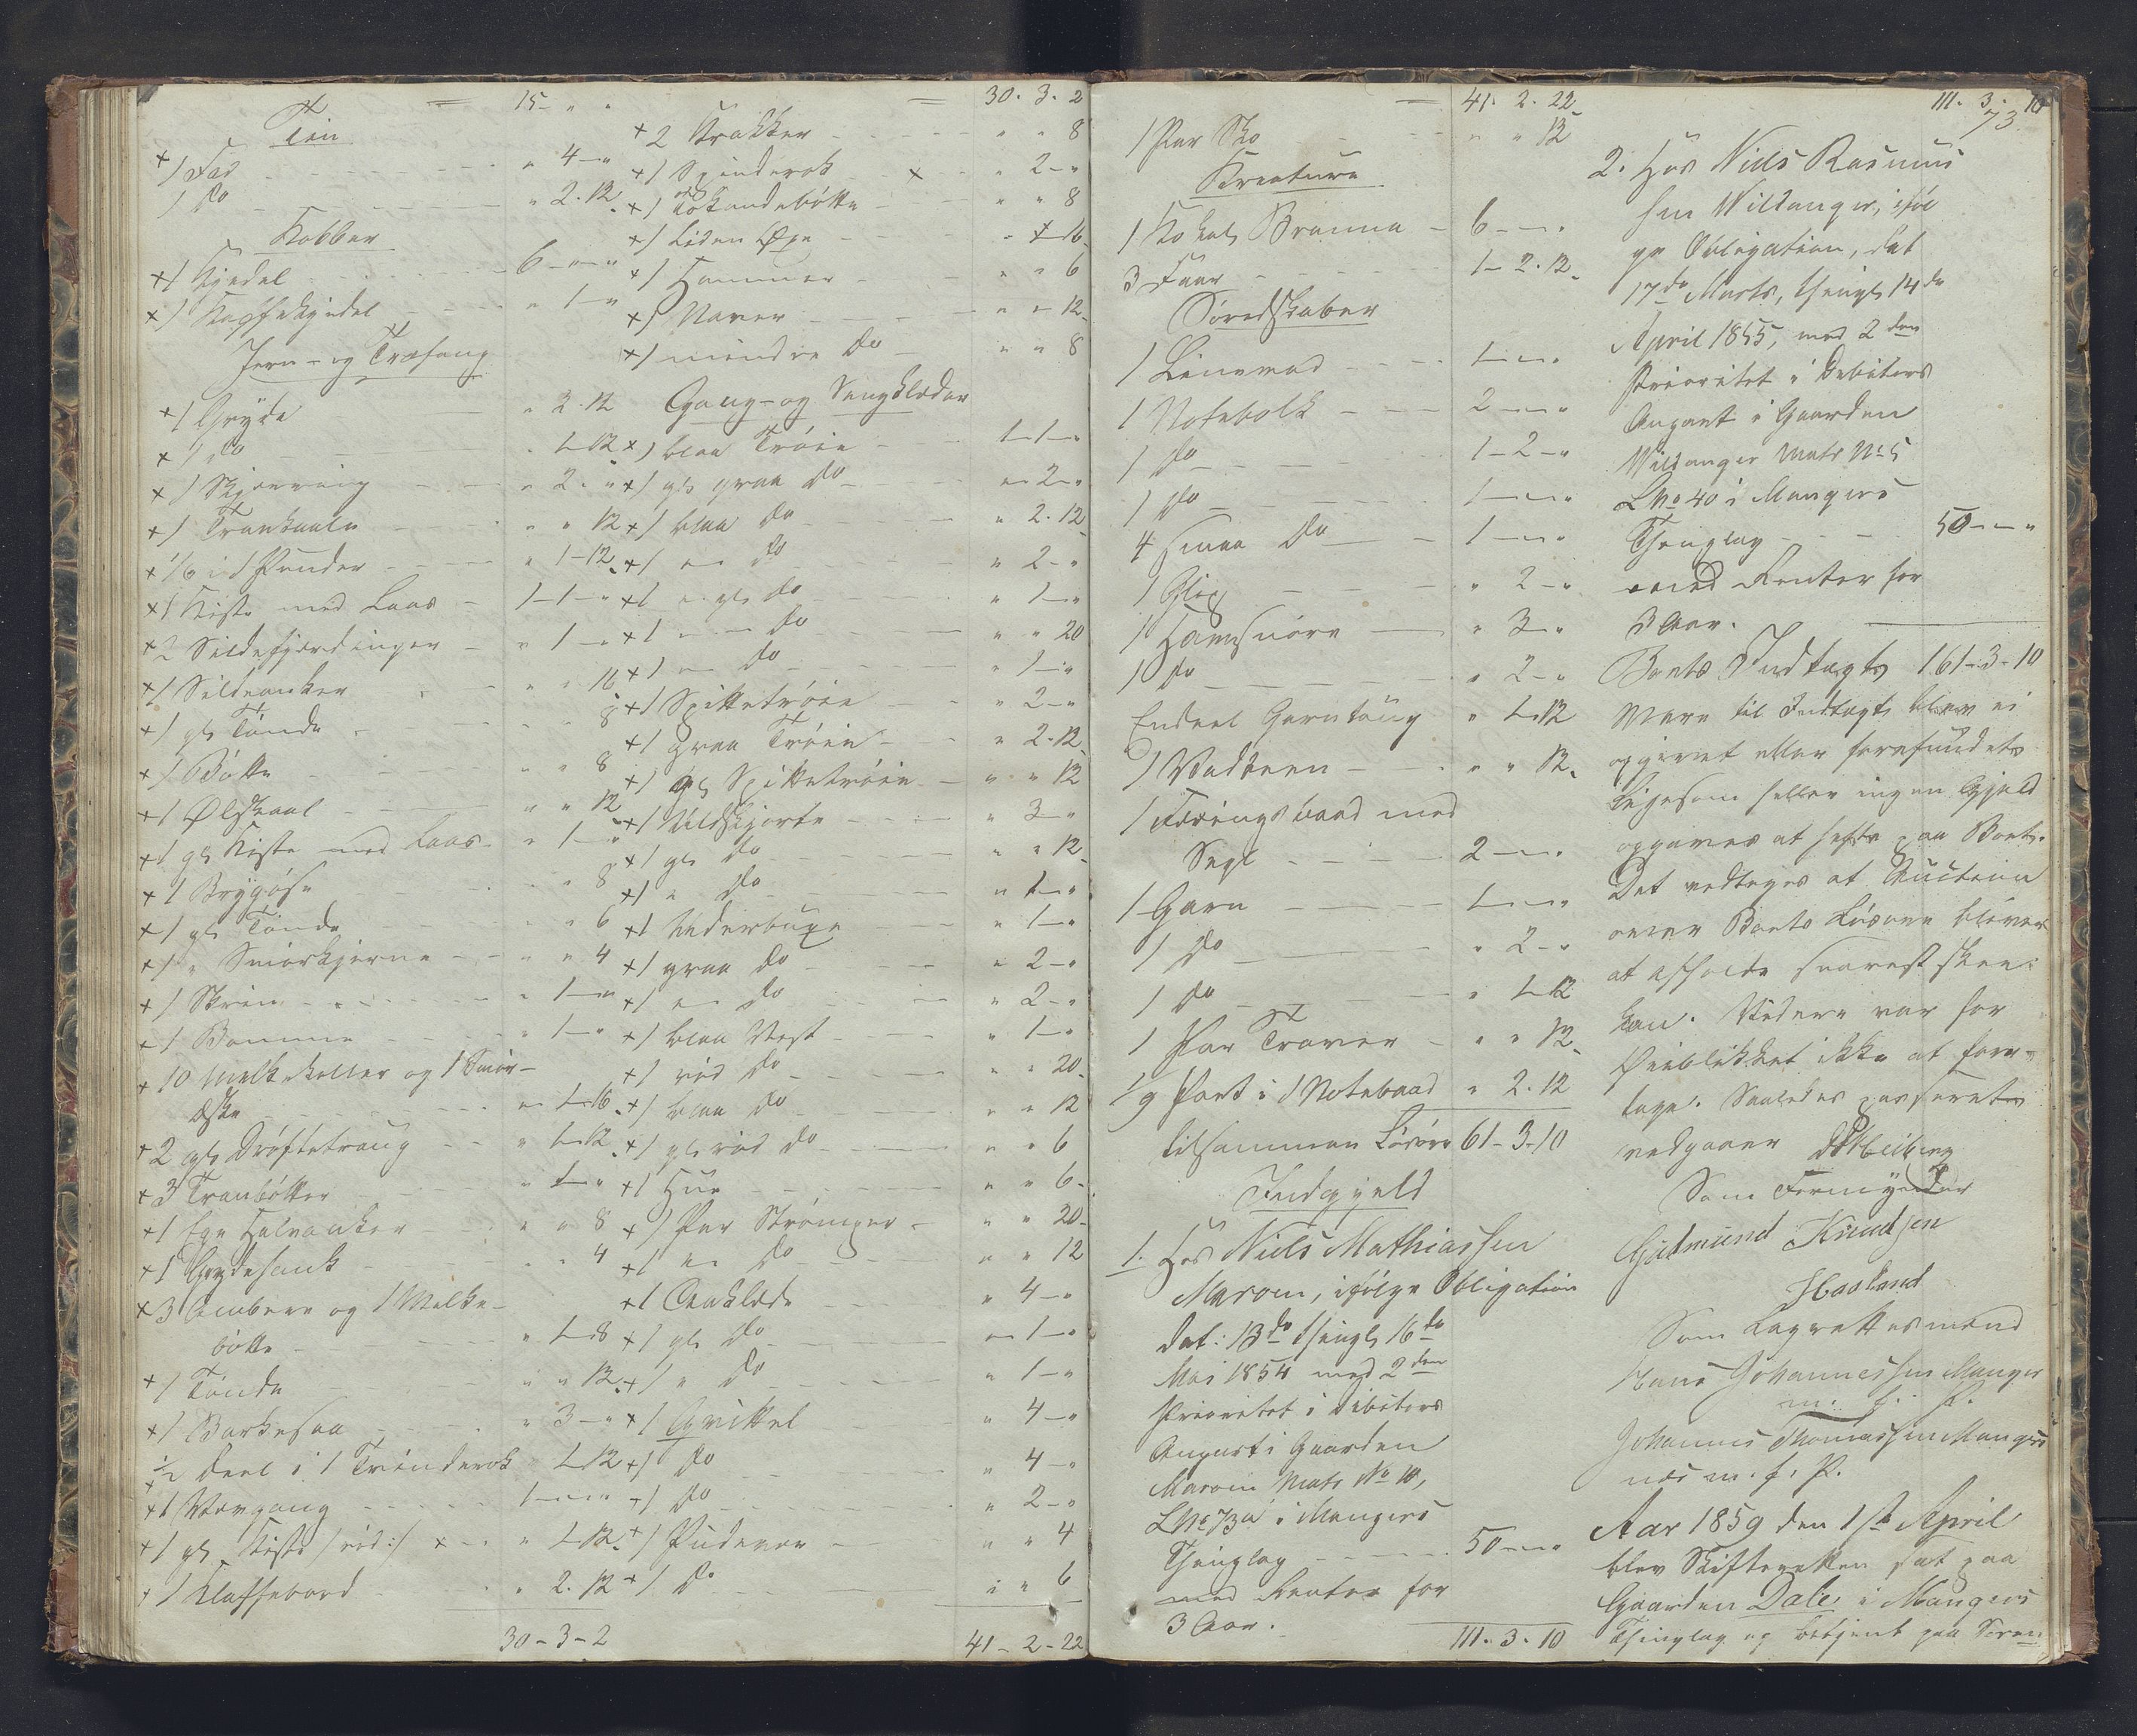 = 15 - " "
Tin
+ 1 Fad - " 4 - "
1 do - " 2. 12.
Kobber
+ 1 Kjedel - 6 - " - "
+ 1 Kaffekjedel - " 1 - "
Jern- og Træfang
+ 1 Gryde - " 2. 12
+ 1 do - " 1-12
+ 1 - " 2. "
+ 1 - " " 12
+ 1/6 i 1 Punder - " 1-12.
+ 1 Kiste med Laas - 1-1-"
+ 2 Sildefjerdinger - " 1-"
+ 1 Sildeanker - " " 16
+ 1 gl. Tønde - " " 8
+ 1 Bøtte - " " 8
+ 1 Ølskaal - " " 12
+ 1 gl. Kiste med Laas - " 1-"
+ 1 Brygøse - " " 8
+ 1 gl. Tønde - " " 6
+ 1 " Smørkjerne - " " 4
+ 1 Skrin - " 1-"
+ 1 Bomme - " 1-"
+ 10 Melkekoller og 1 Smør-
æske - " 1-16.
+ 2 gl. Drøftetraug - " 1-12.
+ 3 Tranbøtter - " 1-"
+ 1 Ege Halvanker - " " 8
+ 1 - " " 4
+ 3 Ambere og 1 Melke-
bøtte - " 1-8
+ 1 Tønde - " " 12.
+ 1 Barkesaa - " 3-"
+ 1/2 Deel i 1 Trinderok " 1-12
+ 1 Vævgang - 1-"-"
+ 1 gl. Kiste /:rød:/ x - " 1-12.
+ 1 Klaffebord - " 2. 12
30-3-2
= 30. 3. 2
+ 2 Krakker - " " 8
+ 1 Spinderok x - " 2-"
+ 1 - " " 8
+ 1 Liden Øxe - " 1-16
+ 1 Hammer - " " 6
+ 1 Naver - " " 12.
+ 1 mindre do - " " 8
Gang- og Sengklæder
+ 1 blaa Trøie - 1-1-"
+ 1 gl. graa do - " 2-"
+ 1 blaa do - " 2. 12
+ 1 " do - " 2-"
+ 1 " gl. do - " 1-"
+ 1 " - do - " " 20
+ 1 " do - " 1-"
+ 1 Spittetrøie - " 2-"
+ 1 graa Trøie - " 2-12.
+ 1 gl. Spittetrøie - " " 12
+ 1 Uldskjorte - " 3-"
+ 1 gl. do - " " 12.
+ 1 " do - " 1-"
+ 1 Underbuxe - " 1-"
+ 1 graa do - " 2-"
+ 1 " do - " 2-"
+ 1 blaa Vest - " 1-"
+ 1 rød do - " " 20.
+ 1 blaa do - " " 12
+ 1 gl. rød do - " " 6
+ 1 Hue - " " 6.
+ 1 Par Strømper - " " 20.
+ 1 " do - " " 12
+ 1 Aaklæde - " 4-"
+ 1 gl. do - " 1-"
+ 1 " do - " 1-"
+ 1 Grittel - " 4-"
+ 1 do - " 4-"
+ 1 do - " 2-"
+ 1 Pudevor - " " 4
+ 1 do - " " 6
41-2-22
= 41. 2. 22
1 Par Sko - " " 12
Kreature
1 Ko kalt Branna - 6-"-"
3 Faar - 1-2.12.
Søredskaber
1 Linevad - 1-"-"
1 Notebolk - 2-"-"
1 do - 1-2-"
1 do - 1-"-"
4 smaa do - 1-"-"
1 Glip - " 2-"
1 Havsnøre - " 3-"
1 do - " 2-"
Endeel Garntøug " 1-12
1 Vadbeen - " " 12.
1 Færingsbaad med
Segl - 2-"-"
1 Garn - 1-"-"
1 do - " 2-"
1 do - " 1-12
1 Par - " " 12.
1/9 Part i 1 Notebaad " 2. 12
tilsammen Løsøre 61-3-10
Indgjeld
1. Hos Niels Mathiassen
Marøen, ifølge Obligation
dat: 13de thingl. 16de
Mai 1854 med 2den
Prioritet i Debitors
Anpart i Gaarden
Marøen Matr No 10,
LNo 73a i Mangers
Thinglag - 50-"-"
med Renter for
3 Aar.
111. 3. 10
111. 3. 10
73
2. Hos Niels Rasmus
sen Vildanger, iføl
ge Obligation, dat
17de Marts, thingl. 14de
April 1855, med 2den
Prioritet i Debitors
Anpart i Gaarden
Vildanger Matr No 5
LNo 40 i Mangers
Thinglag - 50-"-"
med Renter for
3 Aar.
Boets Indtægt 161-3-10
Mere til Indtægt blev ei
opgivet eller forefundet
ligesom heller ingen Gjeld
opgaves at hefte paa Boet.
Det vedtoges at Auction
over Boets Løsøre bliver
at afholde snarest skee
kan. Videre var for
Øieblikket ikke at fore-
tage. Saaledes passeret
vedgaaer Heiberg
Som Formynder
Gudmund Knudsen
Hosland
Som Lagrettesmænd
Hans Johannessen Manger
m. f. P.
Johannes Thomassen Manger
næs m. f. P.
Aar 1859 den 1ste April
blev Skifteretten sat paa
Gaarden Dale i Mangers
Thinglag og betjent paa Soren-